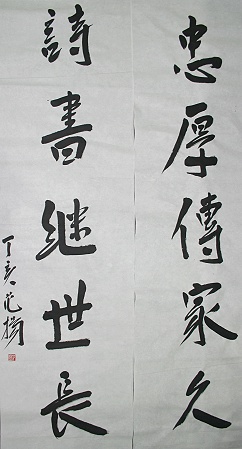 忠厚傳家久
詩書继世長
丁亥